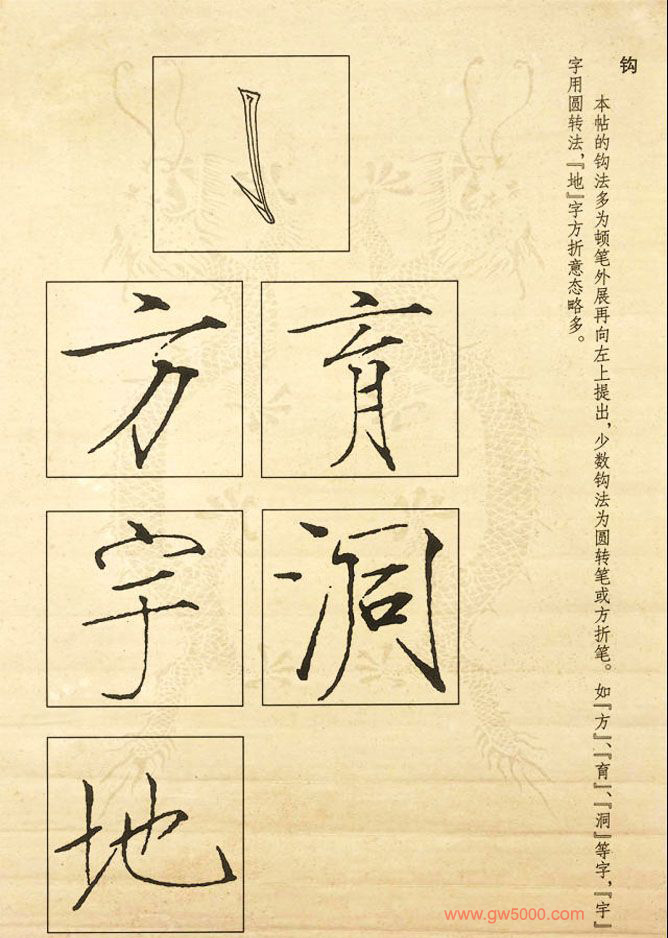 钩
本帖的钩法多为顿笔外展再向左上提出，少数钩法为圆转笔或方折笔。如『方』、『育』、『洞』等字，『宇』
字用圆转法，『地』字方折意态略多。
育
方
洞
宇
地
www.gw5000.com